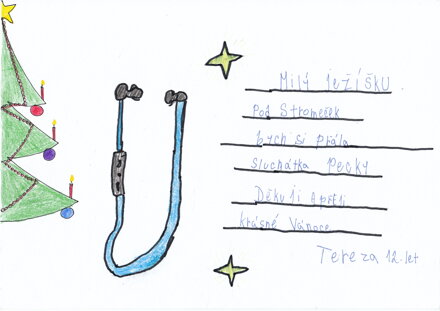 Milý ježíšku
Pod Stromeček
bych si přála
Sluchátka Pecky
Děkuji a přeji
krásné Vánoce
Tereza 12.let